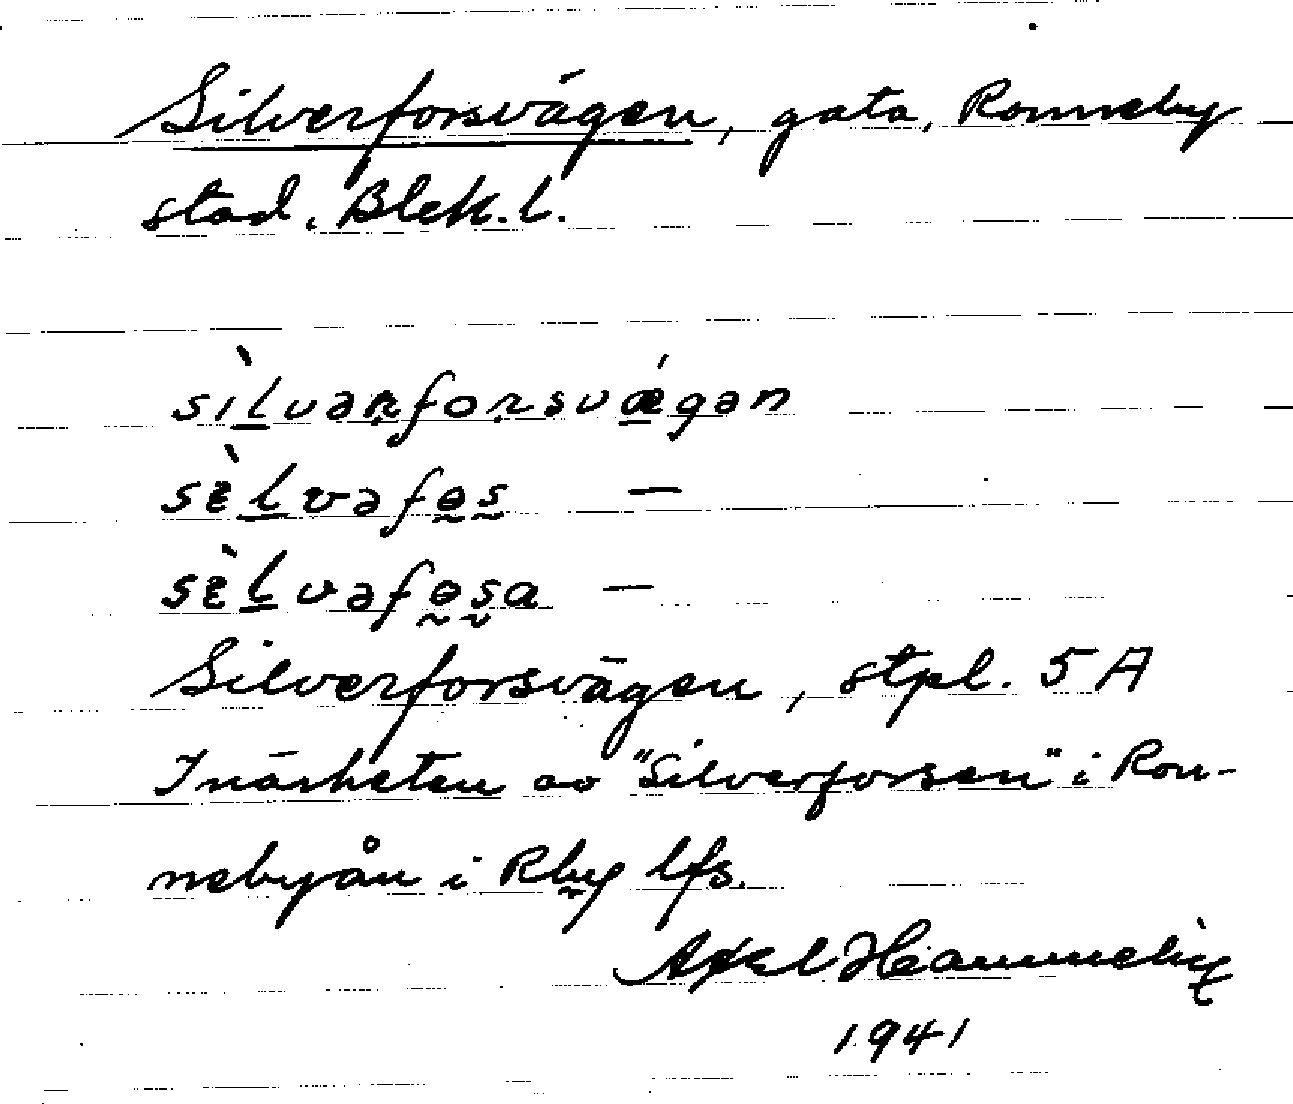 Silverforsvägen, gata, Ronneby
stad. Blek. l.
sìlvərforsvǽgən
sɛ̀lvəfɵs —
sɛ̀lvəfɵsa —
Silverforsvägen, stpl. 5 A
I närheten av "Silverforsen" i Ron-
nebyån i Rby lfs.
Axel
1941